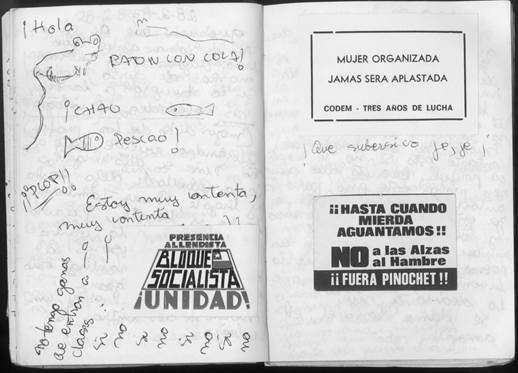 ¡Hola
RATON CON COLA!
¡CHAO
Pescao!
¡¡PLOP!!
Estoy muy contenta,
muy contenta
PRESENCIA
ALLENDISTA
BLOQUE
SOCIALISTA
¡UNIDAD!
No tengo ganas
de entrar a
clases!
Si no si no si no no
MUJER ORGANIZADA
JAMAS SERA APLASTADA
CODEM - TRES AÑOS DE LUCHA
¡Que subersivo je, je ¡
¡¡HASTA CUANDO
MIERDA
AGUANTAMOS!!
NO a las Alzas
al Hambre
¡¡FUERA PINOCHET!!